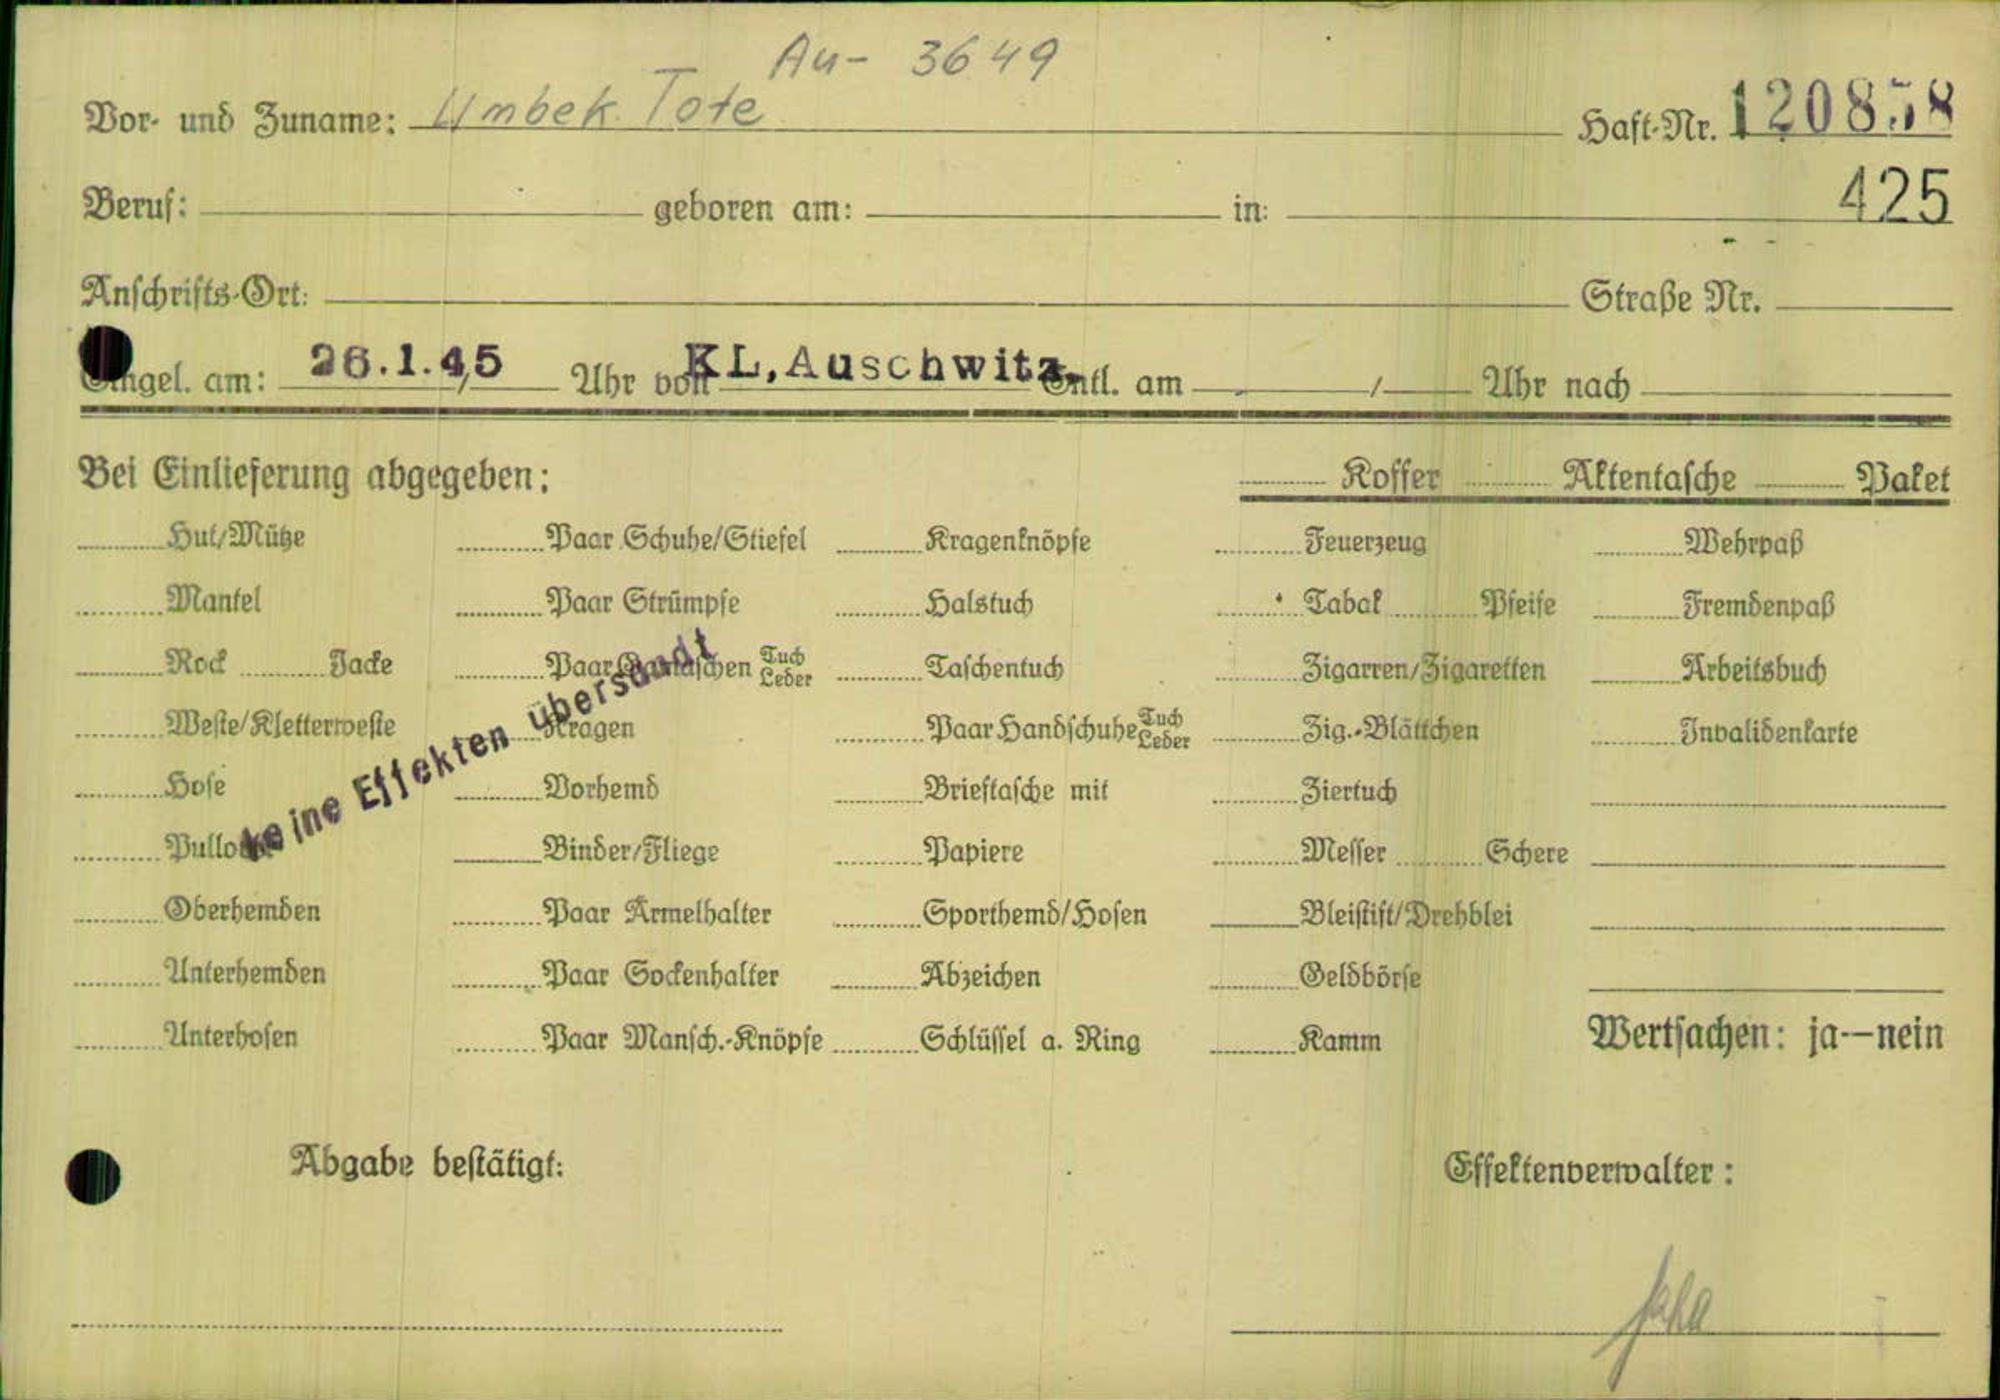 Au- 3649
Vor- und Zuname: Umbek. Tote Haft-Nr. 120858
425
Beruf: geboren am: in:
Anschrifts-Ort: Straße Nr.
Eingel. am: 26.1.45 Uhr von KL, Auschwitz Entl. am / Uhr nach
Bei Einlieferung abgegeben: Koffer Aktentasche Paket
Hut/Mütze Paar Schuhe/Stiefel Kragenknöpfe Feuerzeug Wehrpaß
Mantel Paar Strümpfe Halstuch Tabak Pfeife Fremdenpaß
Rock Jacke Paar Gamaschen Tuch Leder Taschentuch Zigarren/Zigaretten Arbeitsbuch
Weste/Kletterweste Kragen Paar Handschuhe Tuch Leder Zig.-Blättchen Invalidenkarte
Hose Vorhemd Brieftasche mit Ziertuch
Pullover Binder/Fliege Papiere Messer Schere
Oberhemden Paar Ärmelhalter Sporthemd/Hosen Bleistift/Drehblei
Unterhemden Paar Sockenhalter Abzeichen Geldbörse
Unterhosen Paar Mansch.-Knöpfe Schlüssel a. Ring Kamm Wertsachen: ja--nein
keine Effekten übersandt
Abgabe bestätigt: Effektenverwalter: